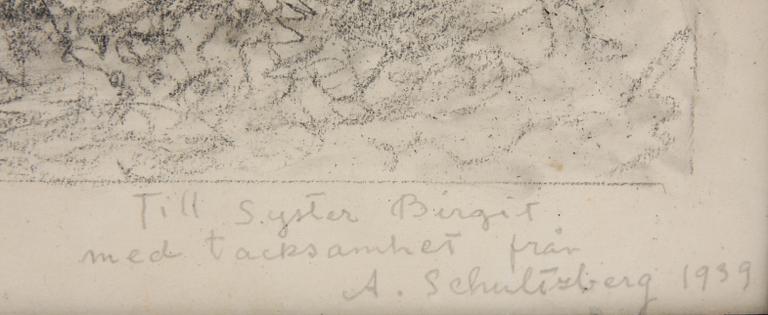 Till Syster Birgit
med tacksamhet från
A. Schultzberg 1939